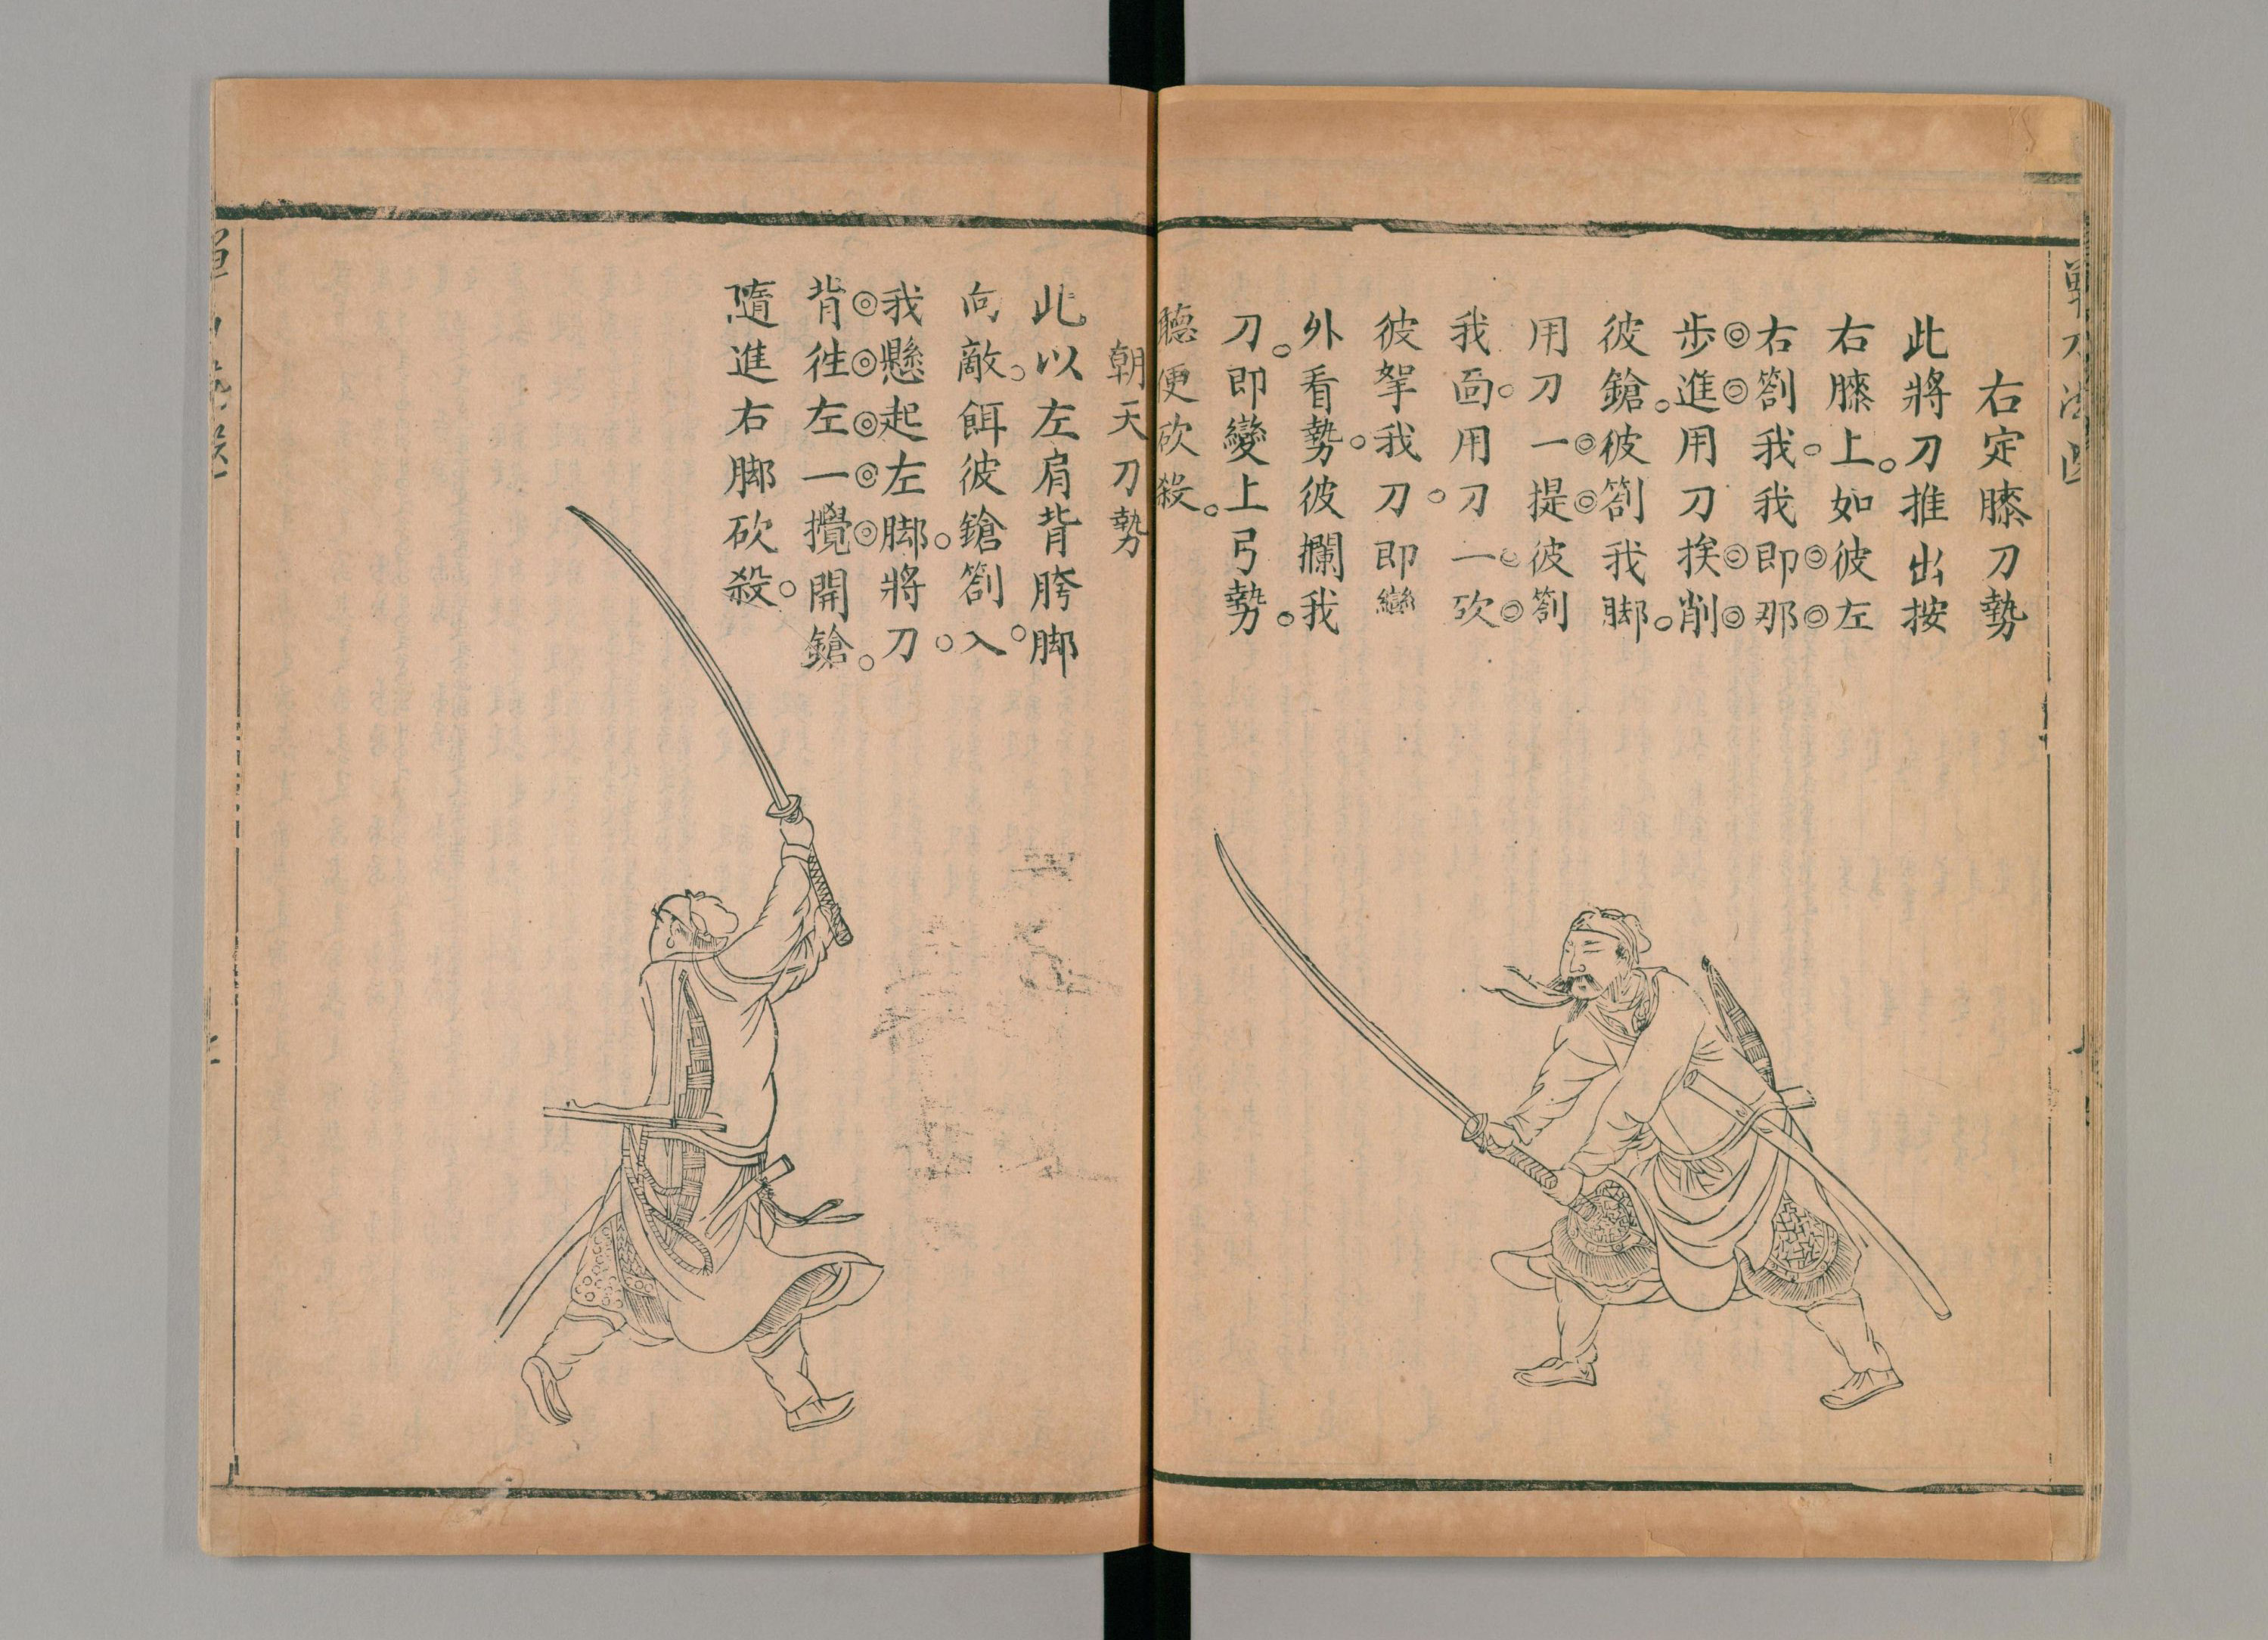 右定膝刀勢
此將刀推出按
右膝上。如彼左
右劄我。我即那
步進用刀挨削
彼鎗。彼劄我脚。
用刀一提彼劄
我面。用刀一砍
彼拏我刀。即變
外看勢。彼攔我
刀。即變上弓勢。
聽便砍殺。
朝天刀勢
此以左肩背胯脚
向敵。餌彼鎗劄入。
我懸起左脚。將刀。
背徃左一攪開鎗。
隨進右脚砍殺。